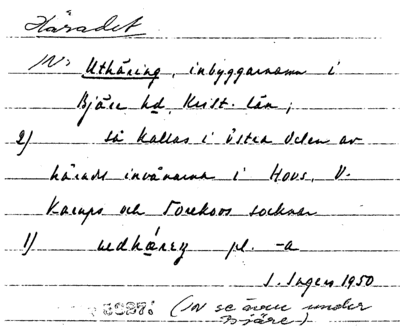 Häradet
IN: Uthäring, inbyggarnamn i
Bjäre hd, Krist. län;
2) så kallas i östra delen av
härads invånarna i Hovs, V.
Karups och Torekovs socknar
1) udhæreng pl. -a
S. Ingers 1950
(IN se även under
Bjäre.)